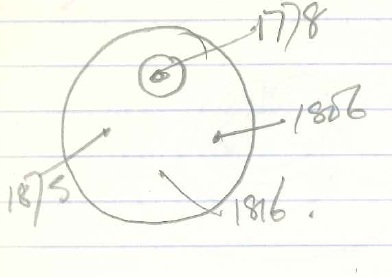 1778
1806
1875
1816.